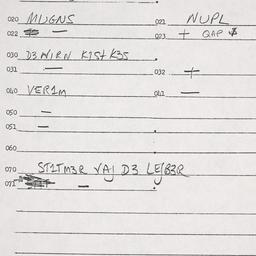 020 MUGNS 021 NUPL
022 — 023 + QAP
030 D3 NIRN K1St K3S
031 — 032 +
040 VER1M 041 —
050 —
051 —
060
070 ST1TM3R VAJ D3 LE/B3R
071 —